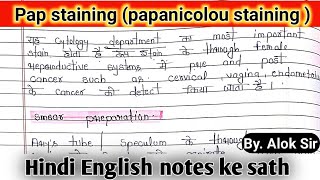 Pap staining (papanicolou staining )
यह cytology department का most important
stain होता है इस stain के through female
reproductive systems में pre and post
cancer such as : cervical, vagina, endometrial
के cancer को detect किया जाता है ।
smear preparation:-
tube | speculum के through
By. Alok Sir
Hindi English notes ke sath